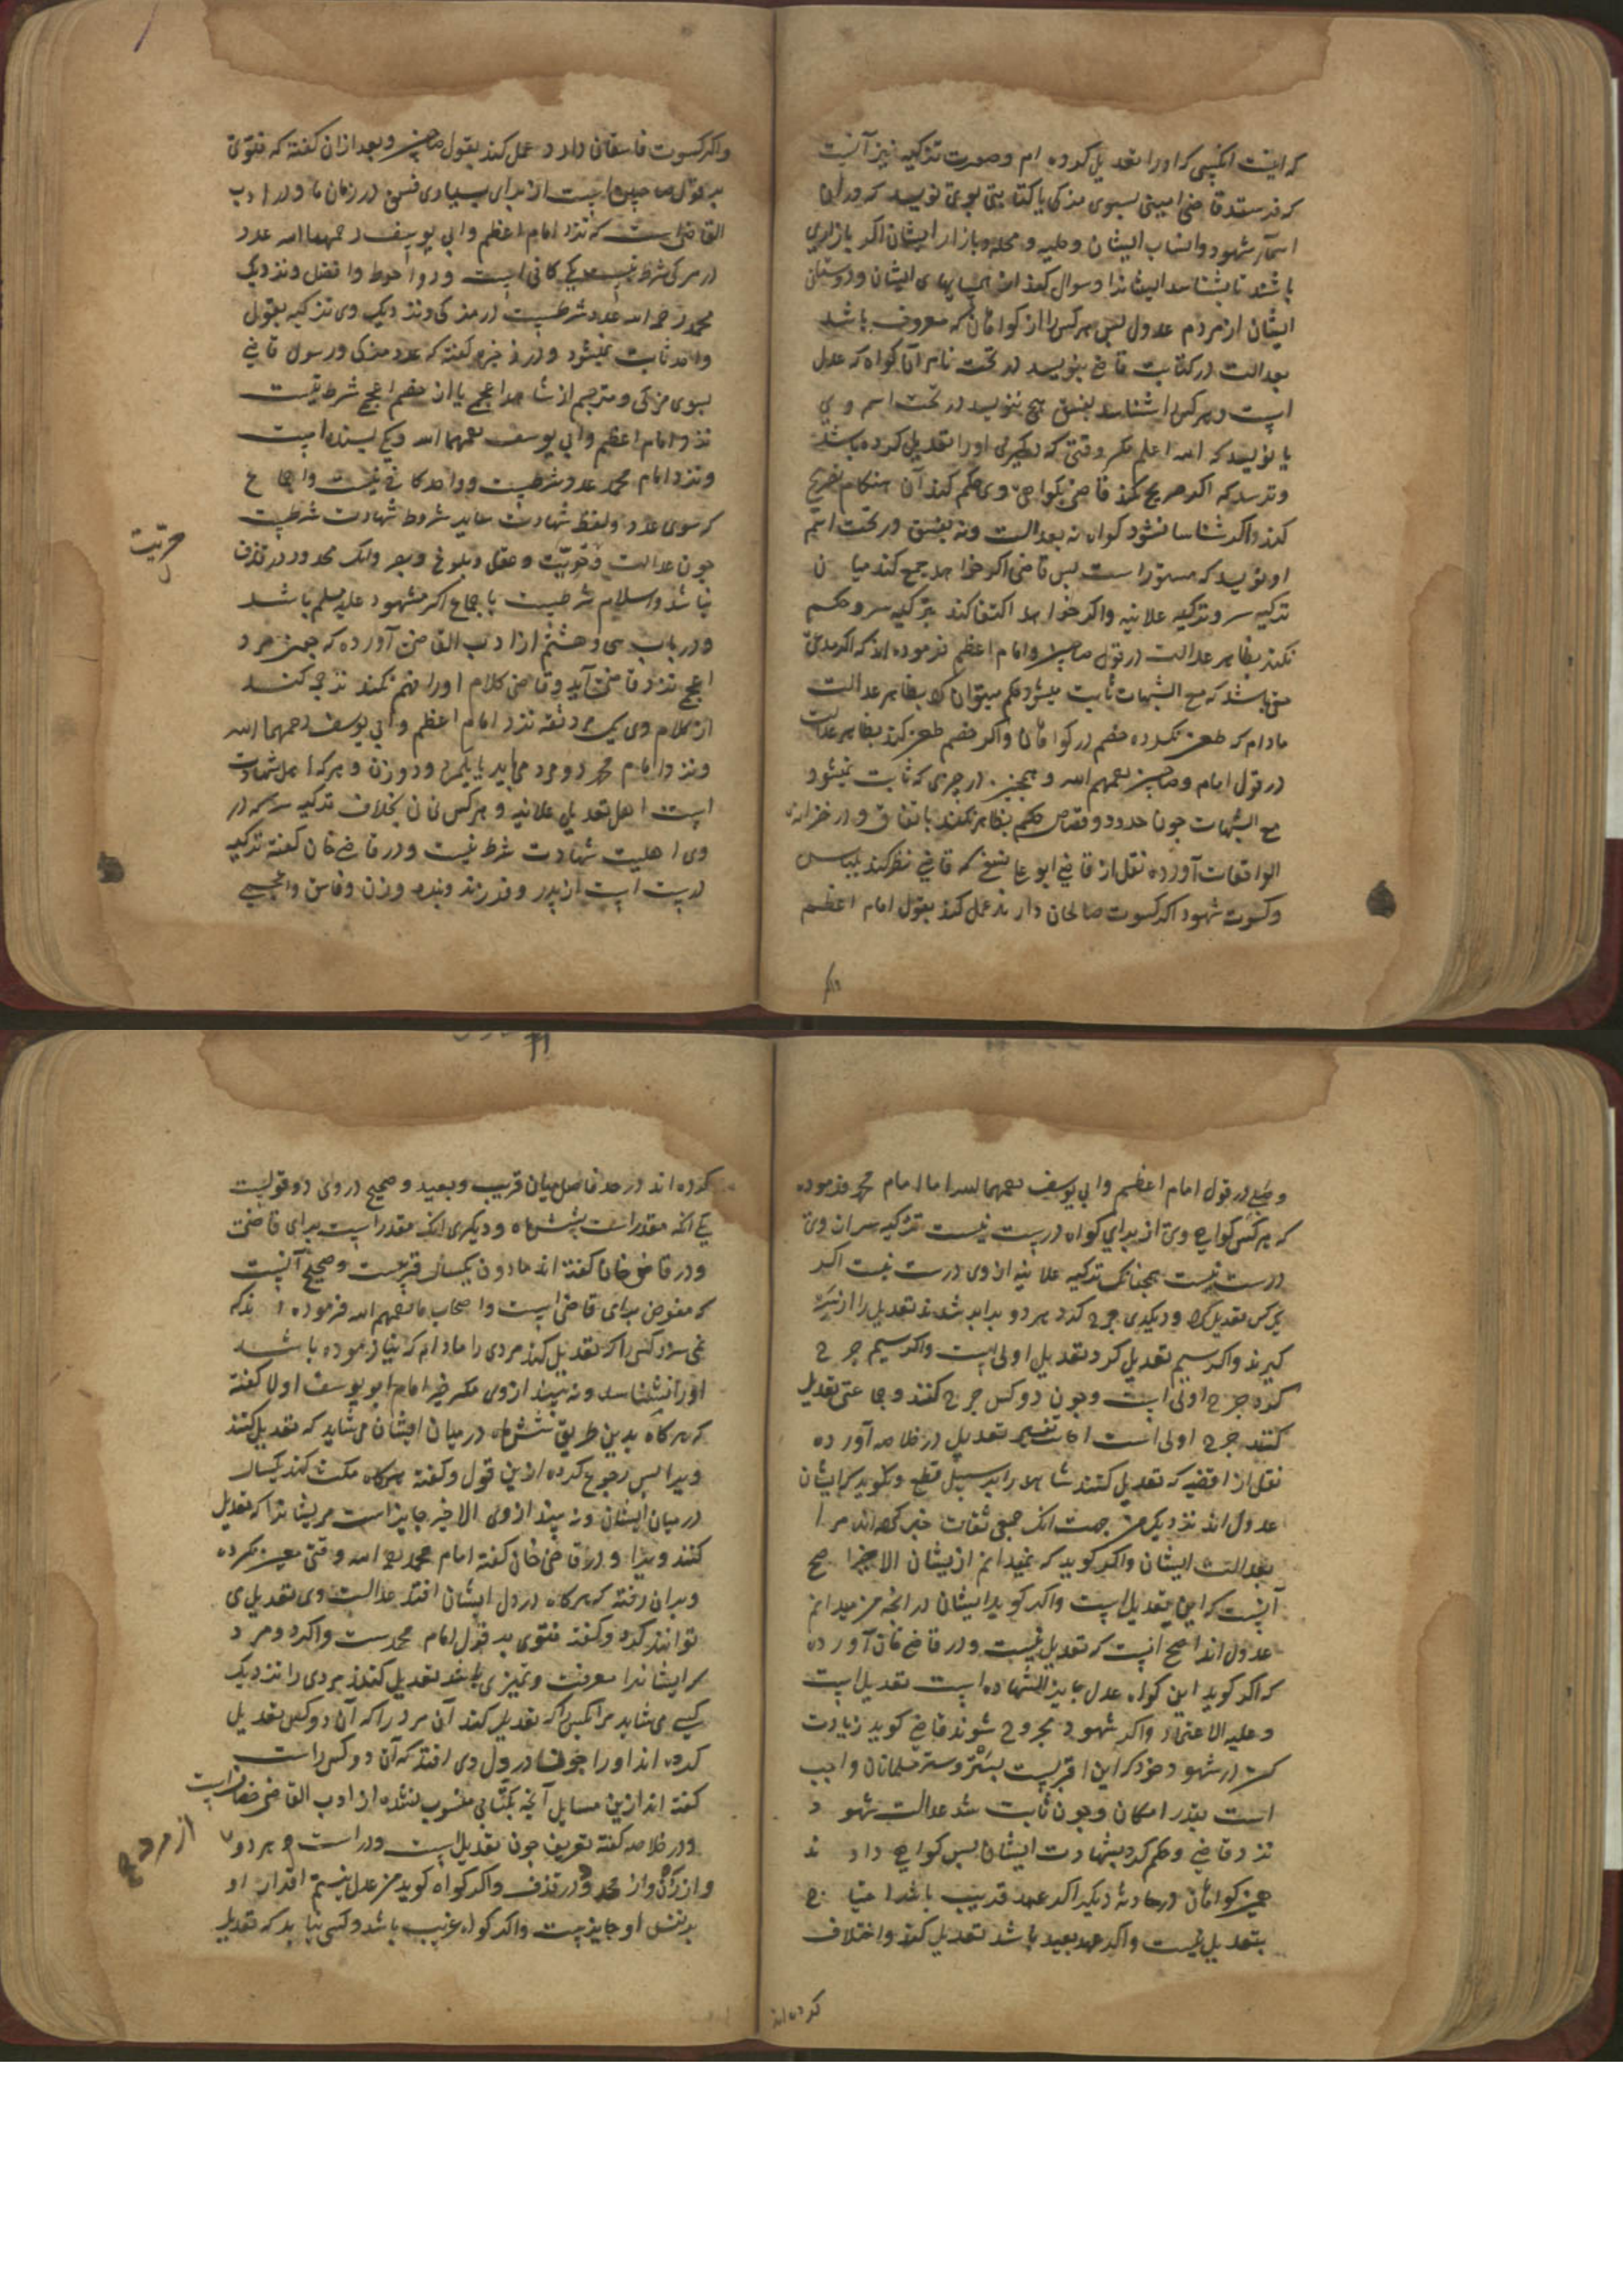 که اینست انکسی که او را تعدیل کرده ام و صورت تزکیه نیز آنست
که فرستد قاضی امینی بسوی مزکی با کتابتی نویسد که در آنجا
اسمآء شهود و انساب ایشان و حلیه و محله و بازار ایشان اکر بازاری
باشند تا بشناسد ایشانرا و سوال کند از همسایهای ایشان و دوستان
ایشان از مردم عدول پس هر کس را از کواهان که معروف باشد
بعدالت در کتابت قاضی بنویسد در تحت نام آن کواه که عدل
است و هر کس را شناسد بفسق هیچ ننویسد در تحت اسم وی
یا نویسد که الله اعلم مکر وقتی که دیکری او را تعدیل کرده باشد
و ترسد که اکر صریح نکند قاضی بکواهی وی حکم کند آن هنکام تصریح
کند و اکر شناسا نشود کواه نه بعدالت و نه بفسق در تحت اسم
او نویسد که مستور است پس قاضی اکر خواهد جمع کند میان
تزکیه سر و تزکیه علانیه و اکر خواهد اکتفا کند بتزکیه سر و حکم
نکند بظاهر عدالت در قول صاحبین و امام اعظم فرموده اند که اکر مدعی
حقی باشد که مع الشبهات ثابت میشود حکم میتوان کرد بظاهر عدالت
مادام که طعن نکرده خصم در کواهان و اکر خصم طعن کند بظاهر عدالت
در قول امام و صاحبین رحمهم الله و همچنین در چیزی که ثابت نمیشود
مع الشبهات چون حدود و قصاص حکم بظاهر نکند باتفاق و در خزانه
الواقعات آورده نقل از قاضی ابو عاصم که قاضی نظر کند بلباس
و کسوت شهود اکر کسوت صالحان دارند عمل کند بقول امام اعظم
واکر
واکر کسوت فاسقان دارد عمل کند بقول صاحبین و بعد از ان کفته که فتوی
بر قول صاحبین است از برای بسیاری فسق در زمان ما و در ادب
القاضی است که نزد امام اعظم و ابی یوسف رحمهما الله عدد
در مزکی شرط نیست یکی کافی است و دو احوط و افضل و نزدیک
محمد رحمه الله عدد شرطست در مزکی و نزدیک وی تزکیه بقول
واحد ثابت نمیشود و در ذخیره کفته که عدد مزکی و رسول قاضی
بسوی مزکی و مترجم از شاهد اعجمی یا از خصم اعجمی شرط نیست
نزد امام اعظم و ابی یوسف رحمهما الله و یکی بسنده است
و نزد امام محمد عدد شرطست و واحد کافی نیست و اجماع
که سوی عدد و لفظ شهادت سایر شروط شهادت شرطست
چون عدالت و حریت و عقل و بلوغ و بصر و انک محدود در قذف
نباشد و اسلام شرطست باجماع اکر مشهود علیه مسلم باشد
حریت
و در باب سی و هشتم از ادب القاضی آورده که چون مرد
اعجمی نزد قاضی آید و قاضی کلام او را فهم نکند ترجمه کند
از کلام وی یک مرد ثقه نزد امام اعظم و ابی یوسف رحمهما الله
و نزد امام محمد دو مرد می باید یا یکمرد و دو زن و هر که اهل شهادت
است اهل تعدیل علانیه و هر کس نی نی بخلاف تزکیه سر که در
وی اهلیت شهادت شرط نیست و در قاضی خان کفته تزکیه
درست است از پدر و فرزند و بنده و زن و فاسق و اعمی
و صبی در قول امام اعظم و ابی یوسف رحمهما الله اما امام محمد فرموده
که هر کس کواهی وی از برای کواه درست نیست تزکیه سر از وی
درست نیست همچنانک تزکیه علانیه از وی درست نیست اکر
یک کس تعدیل کرد و دیکری جرح کرد هر دو برابر شدند تعدیل را از سر
کیرند و اکر سیم تعدیل کرد تعدیل اولی است و اکر سیم جرح
کرده جرح اولی است و چون دو کس جرح کنند و جماعتی تعدیل
کنند جرح اولی است اما تفسیر تعدیل در خلاصه آورده
نقل از اقضیه که تعدیل کنند شاهد را بر سبیل قطع و بکوید که ایشان
عدول اند نزدیک من جهت انک جمعی ثقات خبر کرده اند مرا
بعدالت ایشان و اکر کوید که نمیدانم از یشان الا خیرا اصح
آنست که این تعدیل است و اکر کوید ایشان در انچه من میدانم
عدول اند اصح آنست که تعدیل نیست و در قاضی خان آورده
که اکر کوید این کواه عدل جایز الشهاده است تعدیل است
و علیه الاعتماد و اکر شهود مجروح شوند قاضی کوید زیادت
کن در شهود خود که این اقربست بستر و ستر مسلمانان واجب
است بقدر امکان و چون ثابت شد عدالت شهود
نزد قاضی و حکم کرد بشهادت ایشان پس کواهی دادند
همین کواهان در حادثهٔ دیکر اکر عهد قریب باشد احتیاج
بتعدیل نیست و اکر عهد بعید باشد تعدیل کند و اختلاف
کرده اند
کرده اند در حد فاصل میان قریب و بعید و صحیح در وی دو قولست
یکی انکه مقدر است بشش ماه و دیکری انک مقدر است برای قاضی
و در قاضی خان کفته اند مادون یکسال قریبست و صحیح آنست
که مفوض برای قاضی است و اصحاب ما رحمهم الله فرموده اند که
نمی سزد کسی را که تعدیل کند مردی را مادام که نیازموده باشد
او را نشناسد و نه بیند از وی مکر خیر امام ابو یوسف اولا کفته
که هرکاه بدین طریق شش ماه در میان ایشان می شاید که تعدیل کنند
ویرا پس رجوع کرده از ین قول و کفته هرکاه مکث کند یکسال
در میان ایشان و نه بیند از وی الا خیر جایز است مر یشانرا که تعدیل
کنند ویرا و در قاضی خان کفته امام محمد رحمه الله وقتی معین نکرده
و بر ان رفته که هرکاه در دل ایشان افتد عدالت وی تعدیل می
توانند کرد و کفته فتوی بر قول امام محمد ست و اکر دو مرد
که ایشانرا معرفت و تمیزی باشد تعدیل کنند مردی را نزدیک
کسی می شاید مر انکس را که تعدیل کند آن مرد را که آن دو کس تعدیل
کرده اند او را چون در دل وی افتد که آن دو کس راست
کفته اند از ین مسایل آنچه بکتابی منسوب نشده از ادب القاضی خصاف است
و در خلاصه کفته تعریف چون تعدیل است و در است هر دو
از مرد
و از زن و از محدود در قذف و اکر کواه کوید من عدل نیستم اقرار او
بر نفس او جایز ست و اکر کواه غریب باشد و کسی نیابد که تعدیل